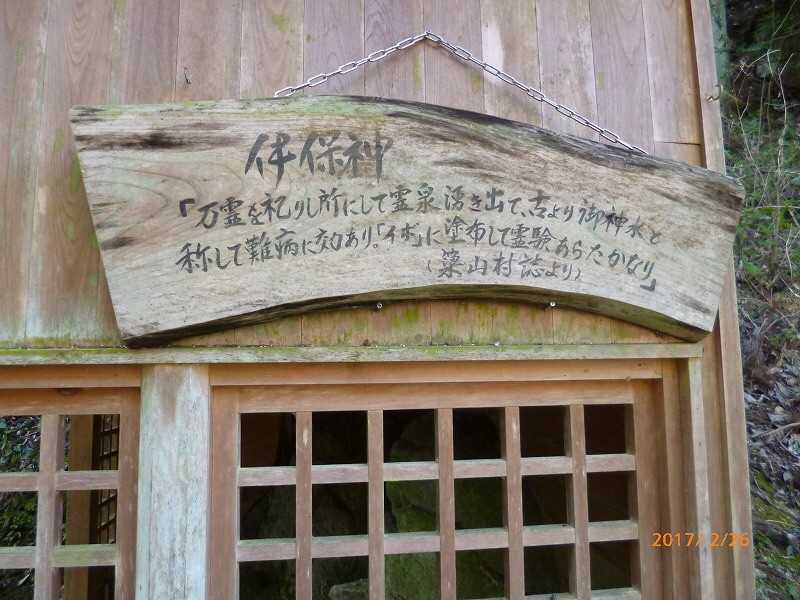 伓保神
「万霊を祀りし所にして霊泉湧き出て、古より御神水と
称して難病に効あり。「イボ」に塗布して霊験あらたかなり」
(築山村誌より)
2017/ 2/26